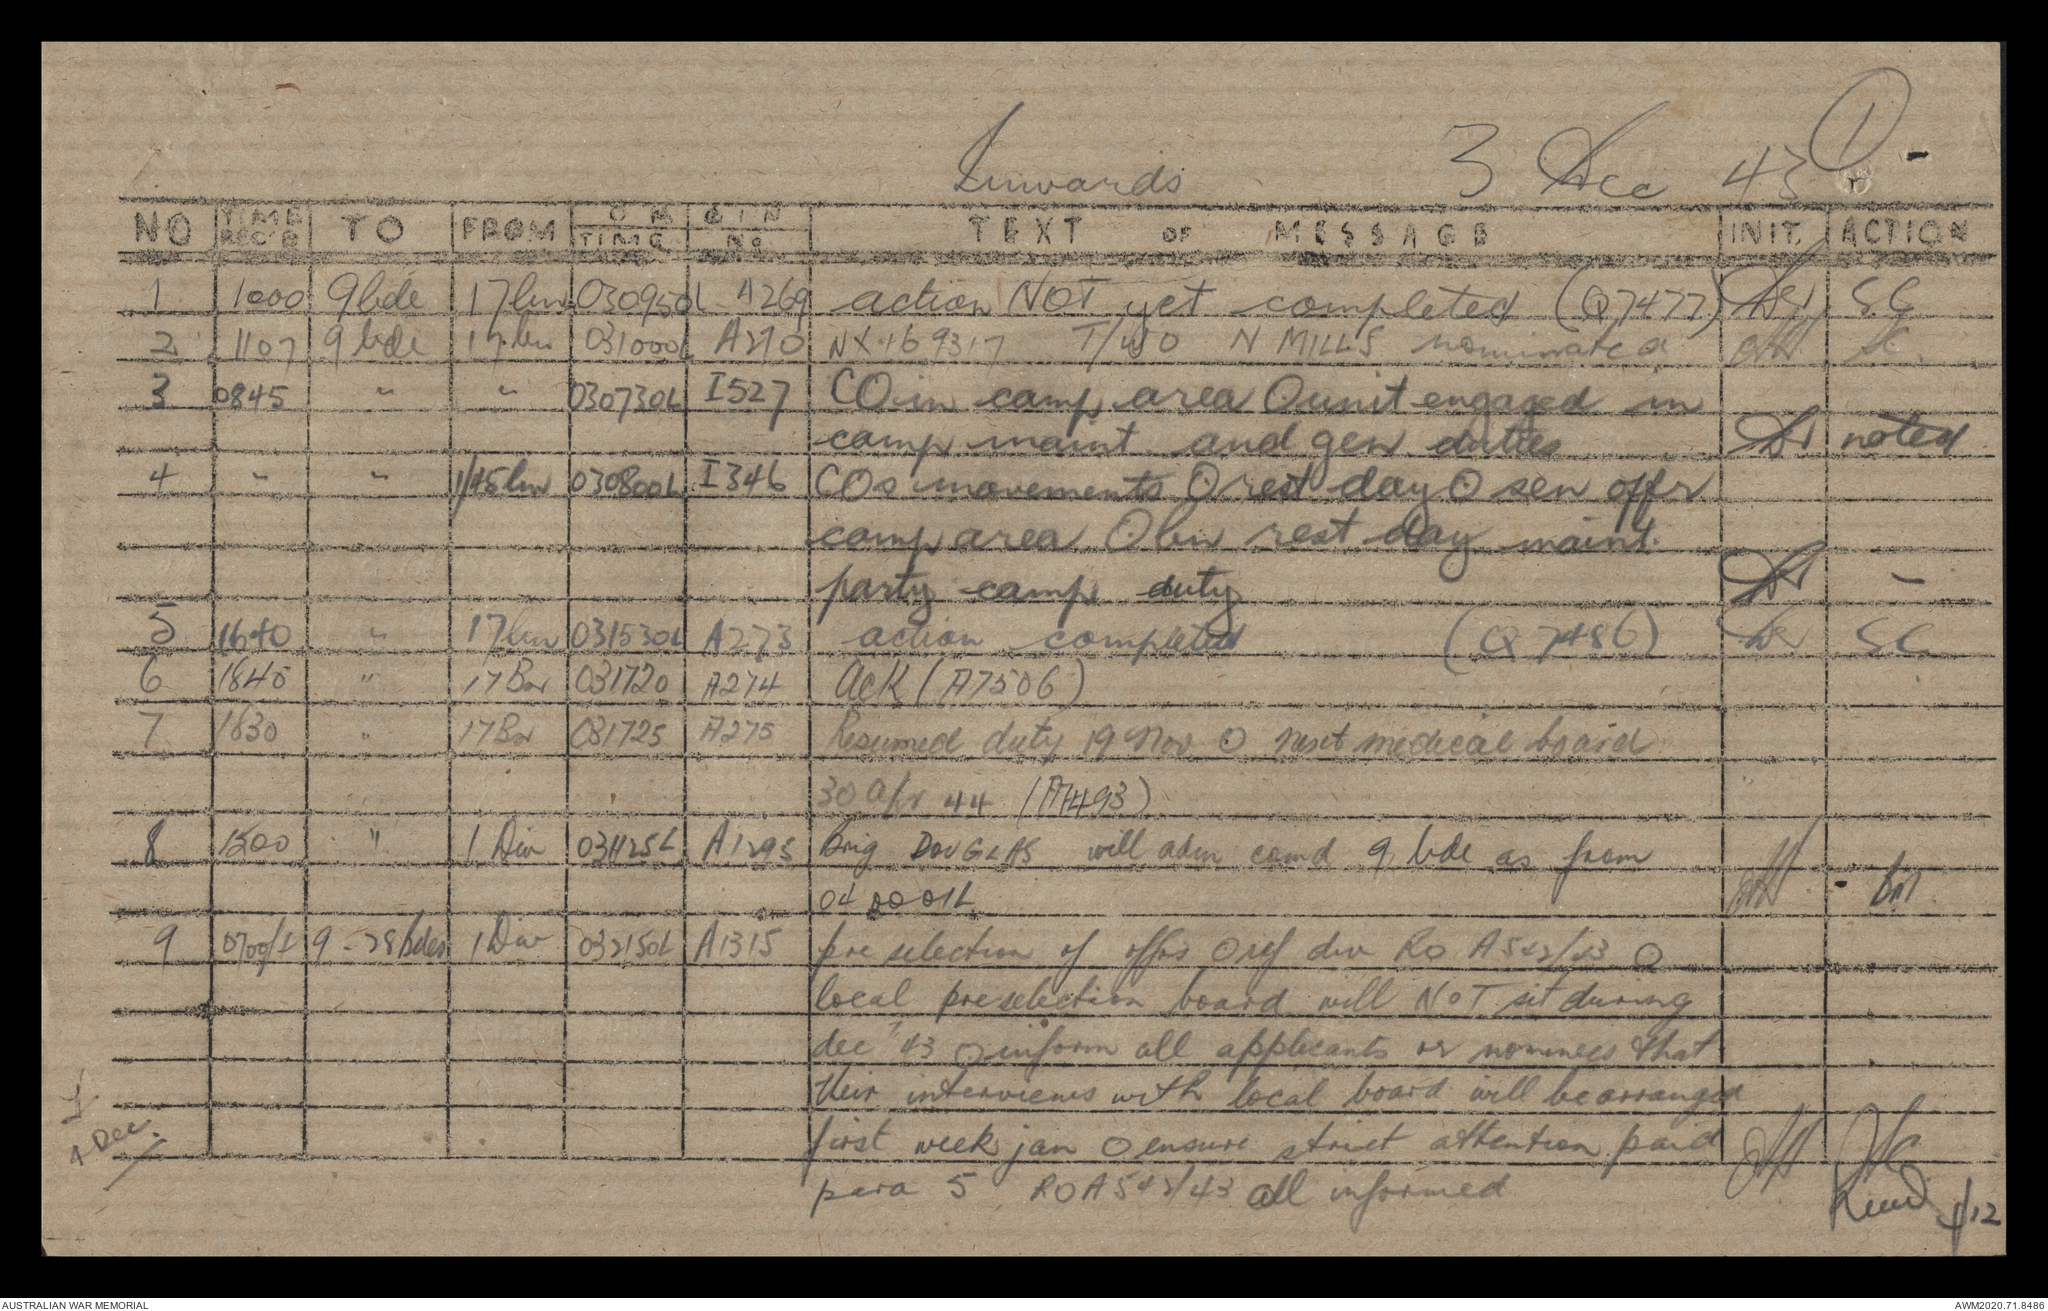 Inwards 3 Dec 43 1
NO TIME REC'D TO FROM OR TIME GIN No TEXT OF MESSAGE INIT. ACTION
1 1000 9 bde 17 bn 030950L A269 action NOT yet completed (Q7477) SC
2 1107 9 bde 17 bn 031000L A270 NX 169317 T/WO N MILLS nominated SC.
3 0845 " " 030730L I527 CO in camp area O unit engaged in
camp maint and gen duties noted
4 " " 1/45 bn 030800L I346 COs movements O rest day O sen offr
camp area O bn rest day maint.
party camp duty -
5 1640 " 17 bn 031530L A273 action completed (Q7486) SC.
6 1840 " 17 Bn 031720 A274 ACK (A7506)
7 1830 " 17 Bn 031725 A275 Resumed duty 19 Nov O next medical board
30 Apr 44 (A7493)
8 1500 " 1 Div 031125L A1295 Brig DOUGLAS will adm comd 9 bde as from
040001L
9 0700/4 9 - 28 bdes 1 Div 032150L A1315 pre selection of offrs O ref div RO A542/43 O
local preselection board will NOT sit during
dec '43 O inform all applicants or nominees that
their interviews with local board will be arranged
first week jan O ensure strict attention paid
4 Dec.
para 5 ROA 542/43 all informed
4/12
AUSTRALIAN WAR MEMORIAL AWM2020.71.8486